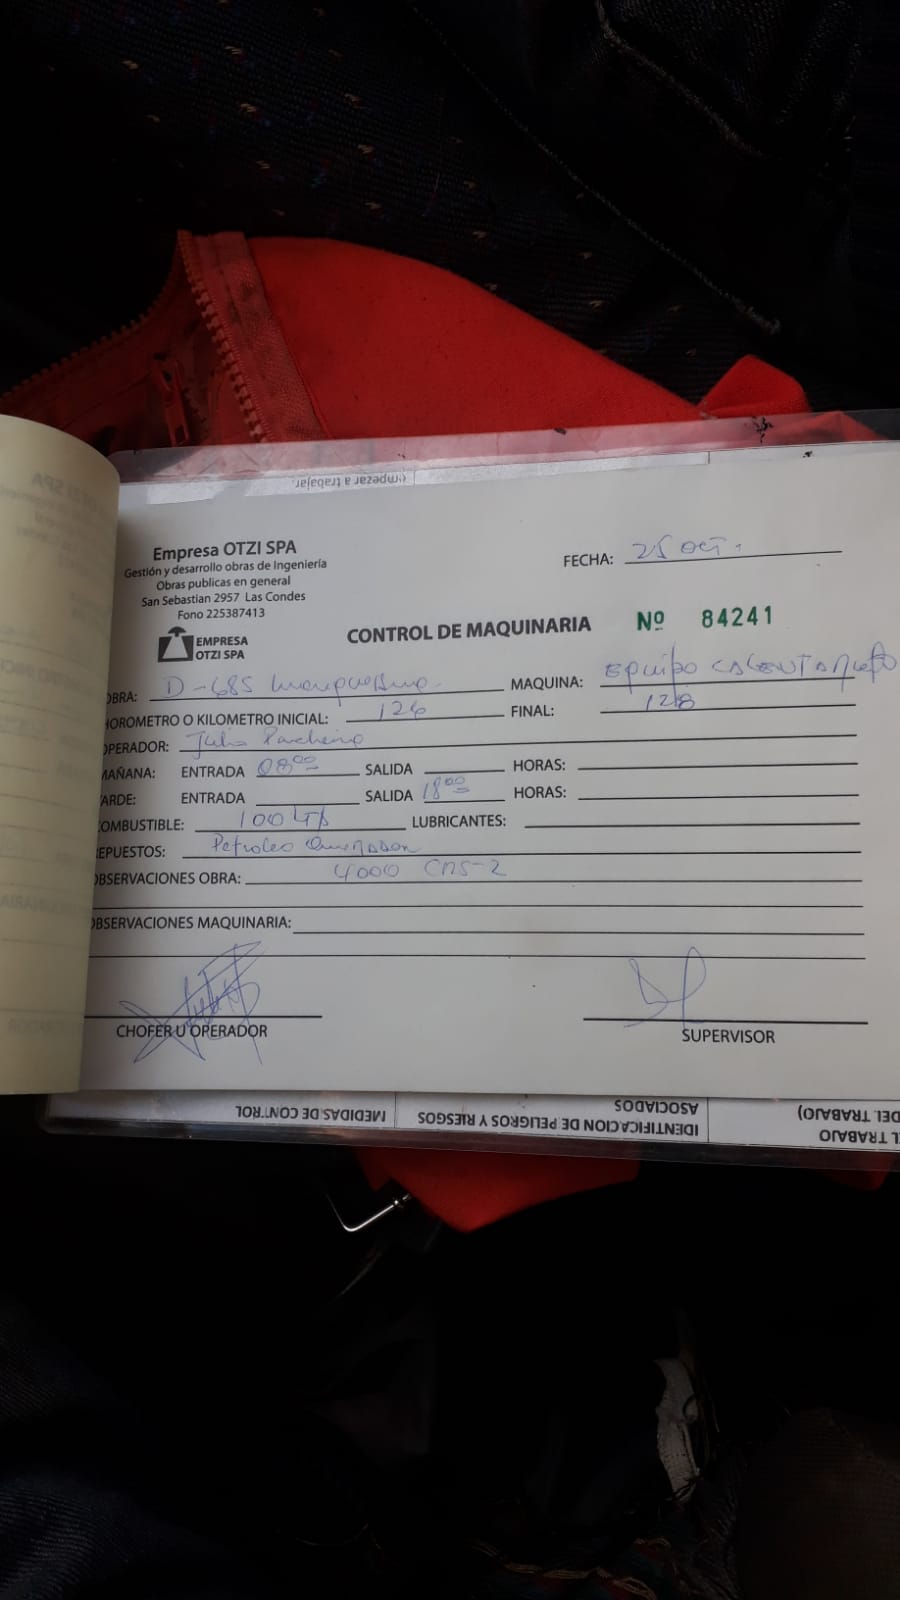 (empezar a trabajar.
Empresa OTZI SPA
Gestión y desarrollo obras de Ingeniería
Obras publicas en general
San Sebastian 2957 Las Condes
Fono 225387413
EMPRESA
OTZI SPA
FECHA: 25 oct.
CONTROL DE MAQUINARIA Nº 84241
OBRA: D-685 MAQUINA: Equipo
HOROMETRO O KILOMETRO INICIAL: 126 FINAL: 128
OPERADOR: Julio
MAÑANA: ENTRADA 08°° SALIDA HORAS:
TARDE: ENTRADA SALIDA 18°° HORAS:
COMBUSTIBLE: 100 LTS LUBRICANTES:
REPUESTOS: Petroleo Quemador
OBSERVACIONES OBRA: 4000 CRS-2
OBSERVACIONES MAQUINARIA:
CHOFER U OPERADOR SUPERVISOR
MEDIDAS DE CONTROL
IDENTIFICACION DE PELIGROS Y RIESGOS
ASOCIADOS
L TRABAJO
DEL TRABAJO)